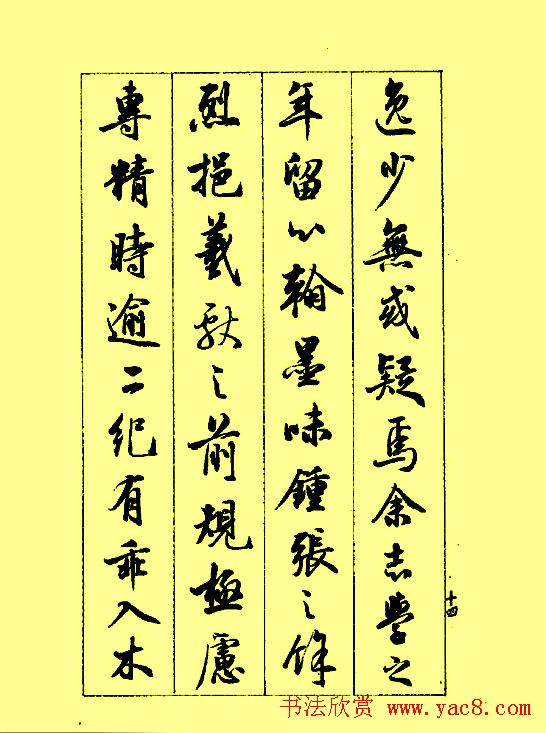 逸少無或疑焉余志學之
年留心翰墨味鍾張之餘
烈挹羲獻之前規極慮
專精時逾二紀有乖入木
十四
书法欣赏 www.yac8.com